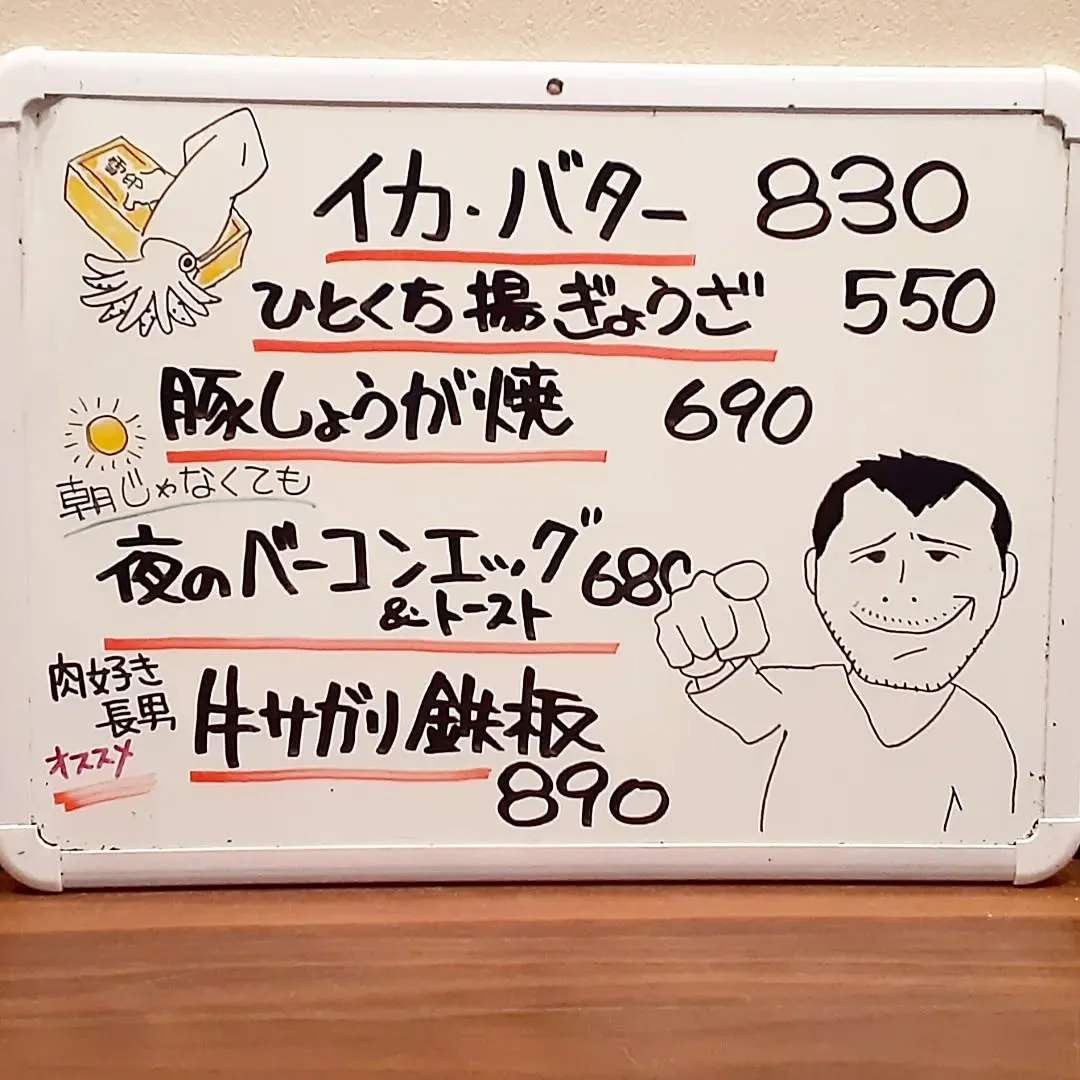 雪印
イカ・バター 830
ひとくち揚ぎょうざ 550
豚しょうが焼 690
朝じゃなくても
夜のベーコンエッグ 680
&トースト
肉好き
長男
オススメ
牛サガリ鉄板
890